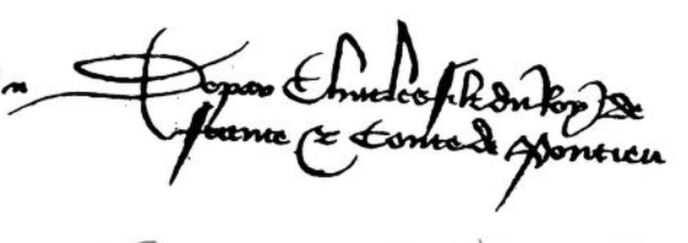 De par Charles filz du Roy de
france & Conte de Pontieu